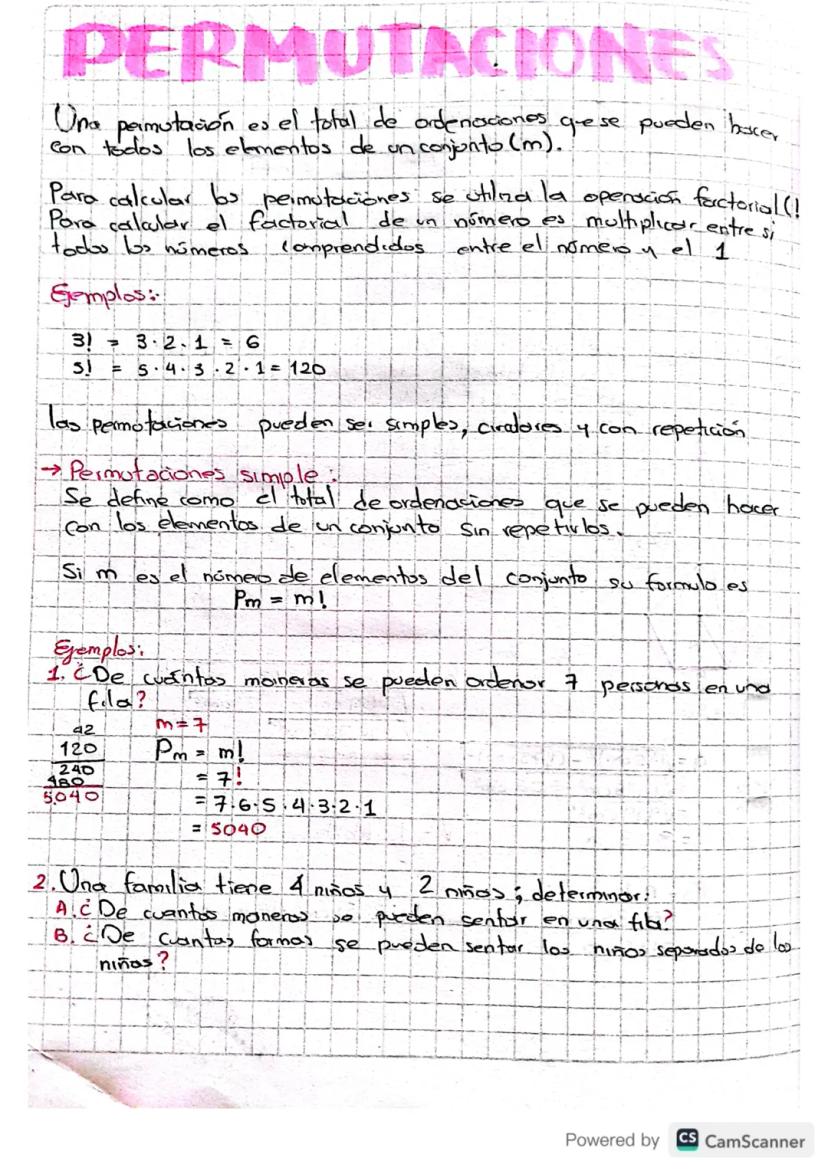 PERMUTACIONES
Una permutación es el total de ordenaciones que se pueden hacer
con todos los elementos de un conjunto (m).
Para calcular las permutaciones se utiliza la operación factorial (!
Para calcular el factorial de un número es multiplicar entre si
todos los números comprendidos entre el número y el 1
Ejemplos:
3! = 3·2·1 = 6
5! = 5·4·3·2·1 = 120
las permutaciones pueden ser simples, circulares y con repetición
→ Permutaciones simple:
Se define como el total de ordenaciones que se pueden hacer
con los elementos de un conjunto sin repetirlos.
Si m es el número de elementos del conjunto su formula es
Pm = m!
Ejemplos:
1. ¿De cuántas maneras se pueden ordenar 7 personas en una
fila?
42
120
240
480
5.040
m = 7
Pm = m!
= 7!
= 7·6·5·4·3·2·1
= 5040
2. Una familia tiene 4 niños y 2 niñas; determinar:
A. ¿De cuantas maneras se pueden sentar en una fila?
B. ¿De cuantas formas se pueden sentar los niños separados de las
niñas?
Powered by CS CamScanner